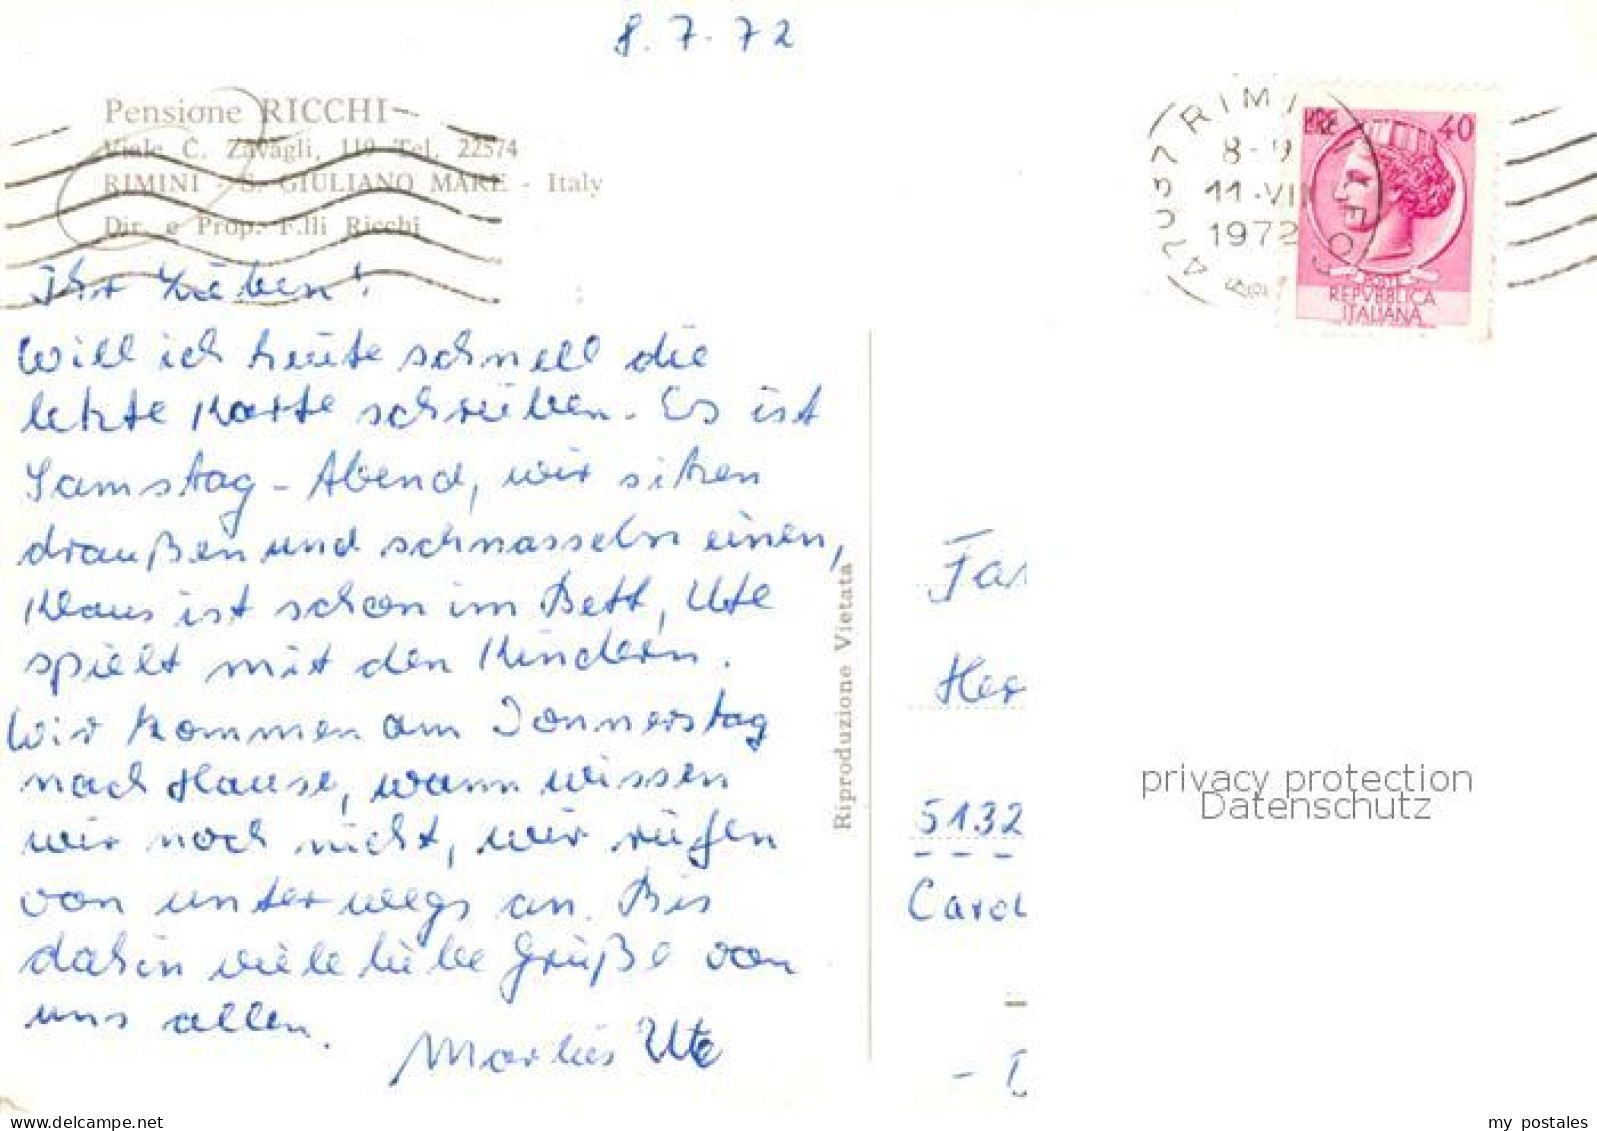 8.7.72
Pensione RICCHI
Viale C. Zavagli, 119 Tel. 22574
RIMINI - S. GIULIANO MARE - Italy
Dir. e Prop. F.lli Ricchi
Ihr Lieben!
Will ich heute schnell die
letzte Karte schreiben. Es ist
Samstag-Abend, wir sitzen
draußen und schnasseln einen,
Klaus ist schon im Bett, Ute
spielt mit den Kindern.
Wir kommen am Donnerstag
nach Hause, wann wissen
wir noch nicht, wir rufen
von unterwegs an. Bis
dahin viele liebe Grüße von
uns allen.
Marlies Ute
Riproduzione Vietata
RIMINI
8-9
11.VII
1972
LIRE 40
POSTE
REPVBBLICA
ITALIANA
Fa
Her
5132
Caro
privacy protection
Datenschutz
www.delcampe.net
my_postales